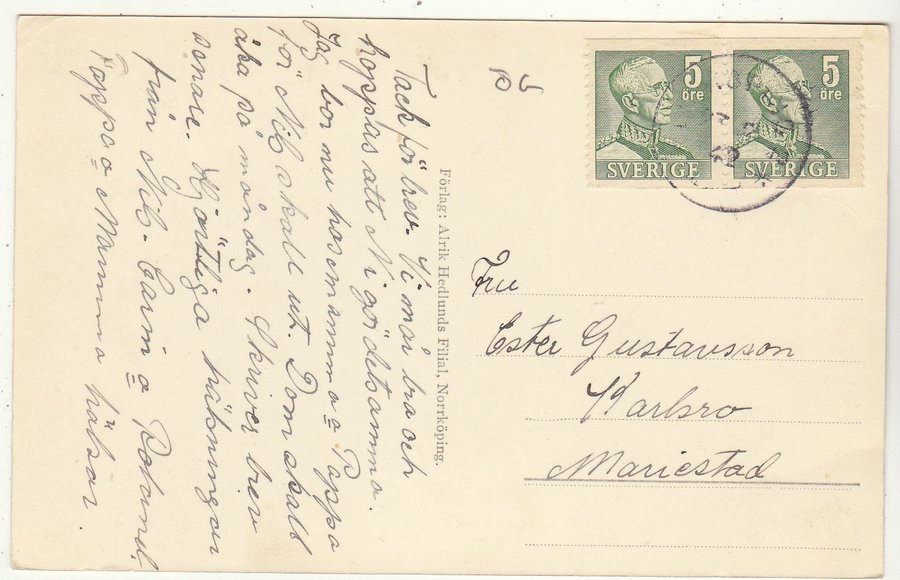 Tack för brev. Vi mår bra och
hoppas att Ni gör detsamma.
Jag bor nu hos mamma o Pappa
för Nils skall ut. Dom skall
åka på måndag. Skriver brev
senare. Hjärtliga hälsningar
från Nils. Carin o Roland
Pappa o Mamma hälsar.
Förlag: Alrik Hedlunds Filial, Norrköping.
5
öre
SVERIGE
5
öre
SVERIGE
Fru
Ester Gustavsson
Karlsro
Mariestad